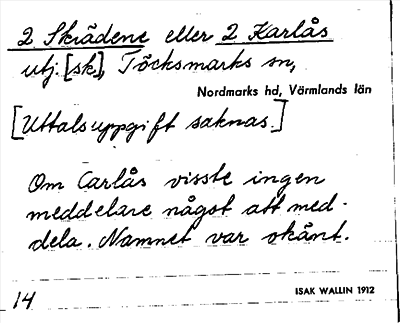 2 Skrädene eller 2 Karlås
utj. [sk], Töcksmarks sn,
Nordmarks hd, Värmlands län
[Uttalsuppgift saknas.]
Om Carlås visste ingen
meddelare något att med-
dela. Namnet var okänt.
14
ISAK WALLIN 1912